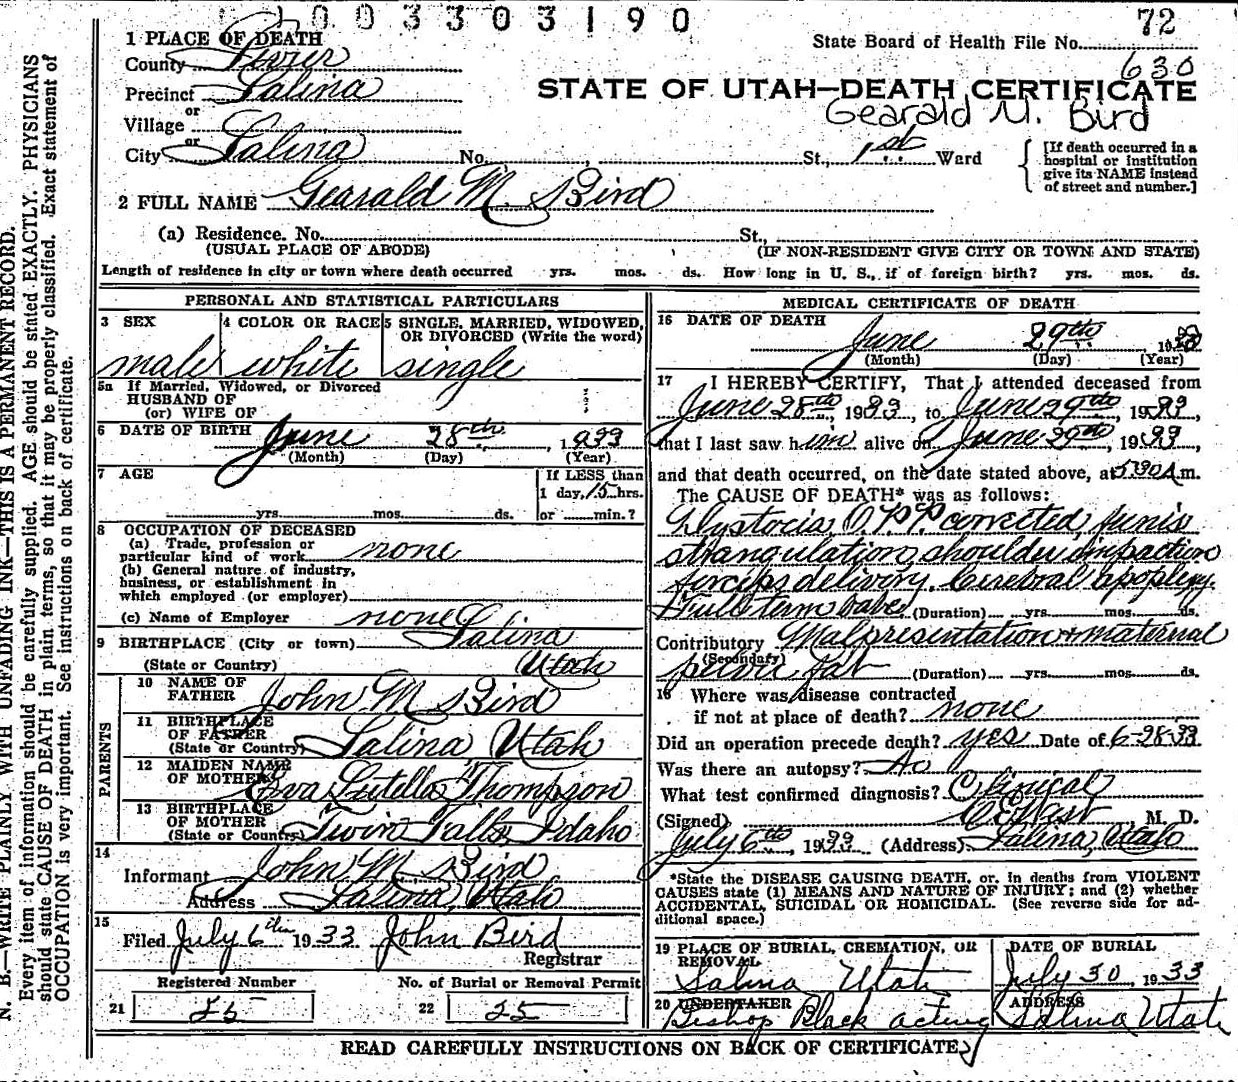 1003303190
72
1 PLACE OF DEATH
State Board of Health File No.
630
County Sevier
STATE OF UTAH—DEATH CERTIFICATE
Precinct Salina
Gearald M. Bird
or
Village
or
City Salina No. , St., 1st Ward
[If death occurred in a hospital or institution give its NAME instead of street and number.]
2 FULL NAME Gearald M. Bird
(a) Residence. No. St.,
(USUAL PLACE OF ABODE) (IF NON-RESIDENT GIVE CITY OR TOWN AND STATE)
Length of residence in city or town where death occurred yrs. mos. ds. How long in U. S., if of foreign birth? yrs. mos. ds.
PERSONAL AND STATISTICAL PARTICULARS
3 SEX 4 COLOR OR RACE 5 SINGLE, MARRIED, WIDOWED, OR DIVORCED (Write the word)
male white single
5a If Married, Widowed, or Divorced
HUSBAND OF
(or) WIFE OF
6 DATE OF BIRTH June 28th, 1933
(Month) (Day) (Year)
7 AGE If LESS than
1 day, 15 hrs.
yrs. mos. ds. or min.?
8 OCCUPATION OF DECEASED
(a) Trade, profession or
particular kind of work none
(b) General nature of industry,
business, or establishment in
which employed (or employer)
(c) Name of Employer none
9 BIRTHPLACE (City or town) Salina
(State or Country) Utah
PARENTS
10 NAME OF FATHER John M. Bird
11 BIRTHPLACE OF FATHER
(State or Country) Salina, Utah
12 MAIDEN NAME OF MOTHER Eva Thompson
13 BIRTHPLACE OF MOTHER
(State or Country) Twin Falls, Idaho
14
Informant John M. Bird
Address Salina, Utah
15
Filed July 6th 1933 John Bird
Registrar
Registered Number No. of Burial or Removal Permit
21 25 22 25
MEDICAL CERTIFICATE OF DEATH
16 DATE OF DEATH June 29th, 19
(Month) (Day) (Year)
17 I HEREBY CERTIFY, That I attended deceased from
June 28th, 1933, to June 29th, 1933,
that I last saw him alive on June 29th, 1933,
and that death occurred, on the date stated above, at 530 A.m.
The CAUSE OF DEATH* was as follows:
Dystocia, O.P.P. corrected, funis
strangulation, shoulder impaction
forceps delivery. Cerebral apoplexy.
Full term babe (Duration) yrs. mos. ds.
Contributory Malpresentation + maternal
(Secondary)
fat (Duration) yrs. mos. ds.
18 Where was disease contracted
if not at place of death? none
Did an operation precede death? yes Date of 6-28-33
Was there an autopsy? No
What test confirmed diagnosis? Clinical
(Signed) , M. D.
July 6th, 1933 (Address) Salina, Utah
*State the DISEASE CAUSING DEATH, or, in deaths from VIOLENT
CAUSES state (1) MEANS AND NATURE OF INJURY; and (2) whether
ACCIDENTAL, SUICIDAL OR HOMICIDAL. (See reverse side for ad-
ditional space.)
19 PLACE OF BURIAL, CREMATION, OR REMOVAL DATE OF BURIAL
Salina Utah July 30, 1933
20 UNDERTAKER ADDRESS
Bishop Black acting Salina Utah
READ CAREFULLY INSTRUCTIONS ON BACK OF CERTIFICATE
N. B.—WRITE PLAINLY WITH UNFADING INK—THIS IS A PERMANENT RECORD.
Every item of information should be carefully supplied. AGE should be stated EXACTLY. PHYSICIANS
should state CAUSE OF DEATH in plain terms, so that it may be properly classified. Exact statement of
OCCUPATION is very important. See instructions on back of certificate.